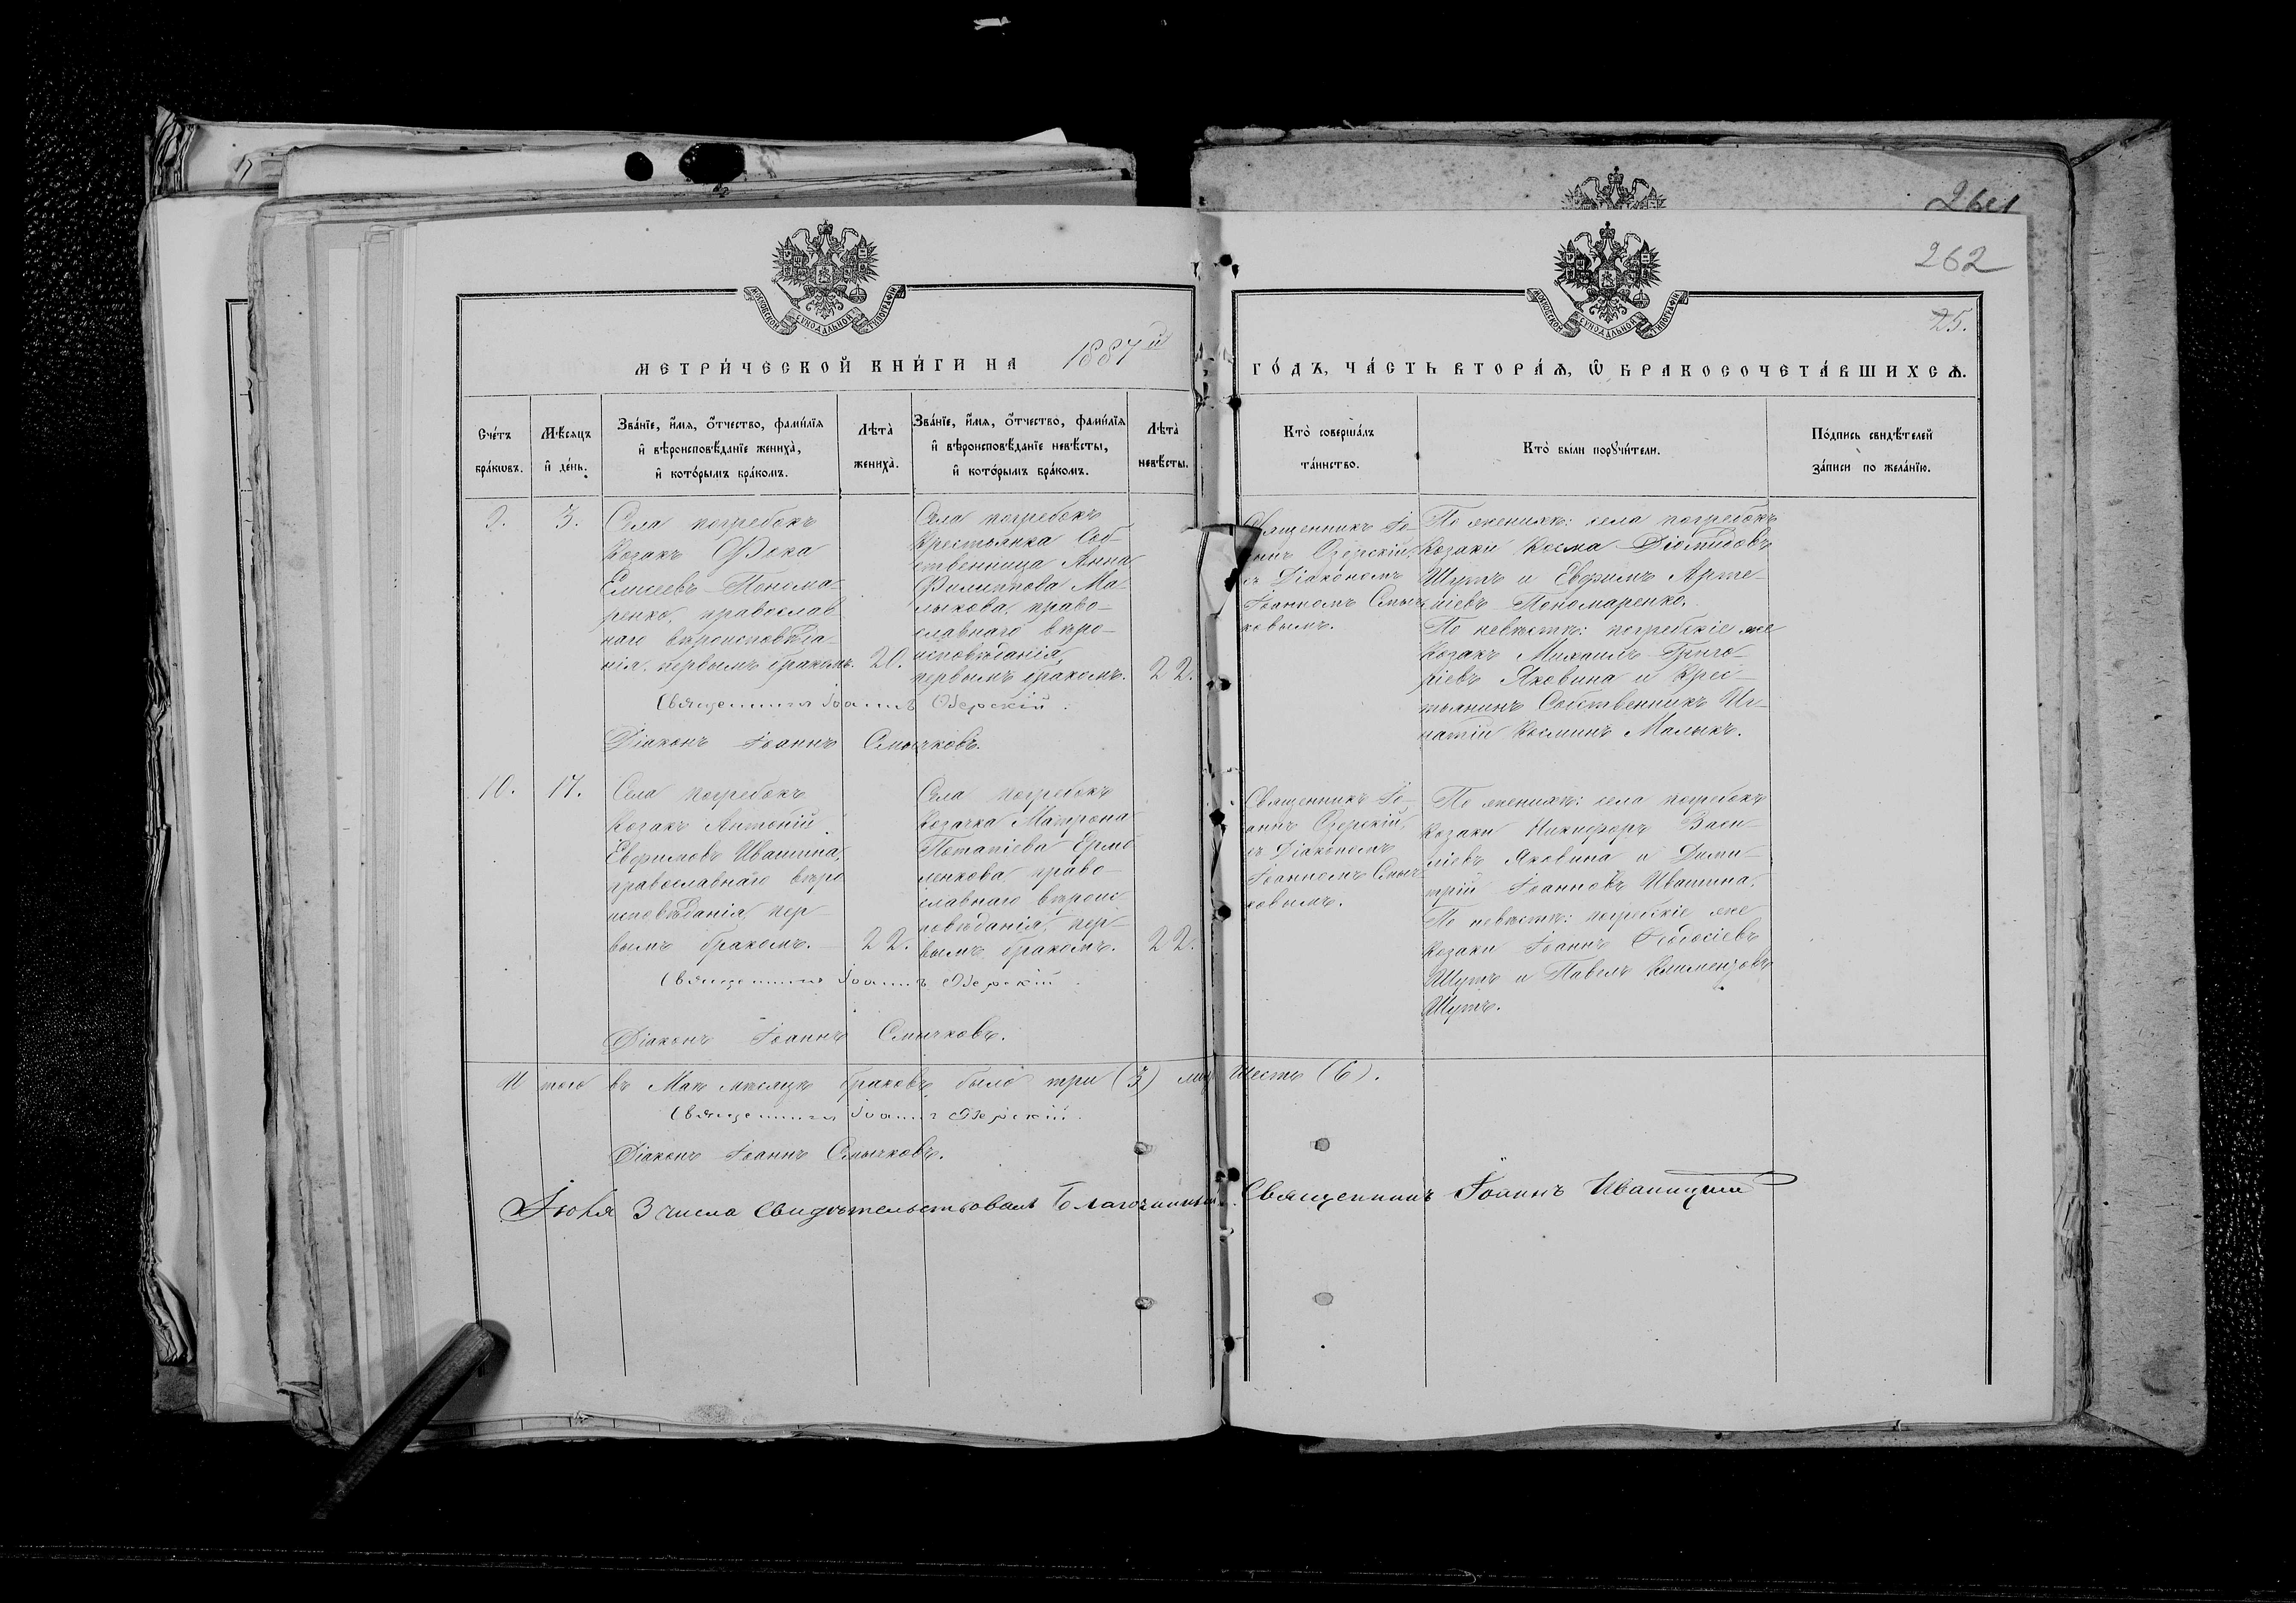 264
262
25.
МОСКОВСКОЙ СУНОДАЛЬНОЙ ТИПОГРАФІИ
МОСКОВСКОЙ СУНОДАЛЬНОЙ ТИПОГРАФІИ
МЕТРИ́ЧЕСКОЙ КНИ́ГИ НА 1887й
ГО́ДЪ, ЧА́СТЬ ВТОРА́Ѧ, Ѿ БРАКОСОЧЕТА́ВШИХСѦ.
Сче́тъ
бра́кѡвъ.
Мѣ́сяцъ
и҆ де́нь.
Зва́нїе, и҆́мя, ѻ҆́тчество, фами́лїя
и҆ вѣроисповѣ́данїе жениха̀,
и҆ кото́рымъ бра́комъ.
Лѣта̀
жениха̀.
Зва́нїе, и҆́мя, ѻ҆́тчество, фами́лїя
и҆ вѣроисповѣ́данїе невѣ́сты,
и҆ кото́рымъ бра́комъ.
Лѣта̀
невѣ́сты.
Кто̀ соверша́лъ
та́инство.
Кто̀ бы́ли порꙋчи́тели.
По́дпись свидѣ́телей
за́писи по жела́нїю.
9.
3.
Села погребокъ
Козакъ Фока
Елисеевъ Понома-
ренко, православ
наго вѣроисповѣда-
нія, первымъ бракомъ.
20.
Села погребокъ
Крестьянка Соб-
ственница Анна
Филиппова Ма-
лыкова, право-
славнаго вѣро-
исповѣданія,
первымъ бракомъ.
22.
Священникъ Іо-
аннъ Озерскій,
съ Діакономъ
Іоанномъ Смыч-
ковымъ.
По женихѣ: села погребокъ
Козаки Косма Діомидовъ
Шутъ и Евфимъ Арте-
міевъ Пономаренко.
По невѣстѣ: погребскіе же
Козакъ Михаилъ Григо-
ріевъ Яковина и Крес-
тьянинъ Собственникъ Иг-
натій Косминъ Малыкъ.
Священникъ Іоаннъ Озерскій.
Діаконъ Іоаннъ Смычковъ.
10.
17.
Села погребокъ
Козакъ Антоній
Евфимовъ Ивашина,
православнаго вѣро
исповѣданія, пер-
вымъ бракомъ.
22.
Села погребокъ
Козачка Матрона
Потапіева Ермо
ленкова, право-
славнаго вѣроис
повѣданія, пер-
вымъ бракомъ.
22.
Священникъ Іо-
аннъ Озерскій,
съ Діакономъ
Іоанномъ Смыч-
ковымъ.
По женихѣ: села погребокъ
Козаки Никифоръ Васи-
ліевъ Яковина и Дими-
трій Іоанновъ Ивашина.
По невѣстѣ: погребскіе же
Козаки Іоаннъ Ѳеодосіевъ
Шутъ и Павелъ Климентовъ
Шутъ.
Священникъ Іоаннъ Озерскій.
Діаконъ Іоаннъ Смычковъ.
Итого въ Маѣ мѣсяцѣ браковъ было три (3) лицъ шесть (6).
Священникъ Іоаннъ Озерскій.
Діаконъ Іоаннъ Смычковъ.
Іюня 3 числа свидѣтельствовалъ Благочинный Священникъ Іоаннъ Иваницкій